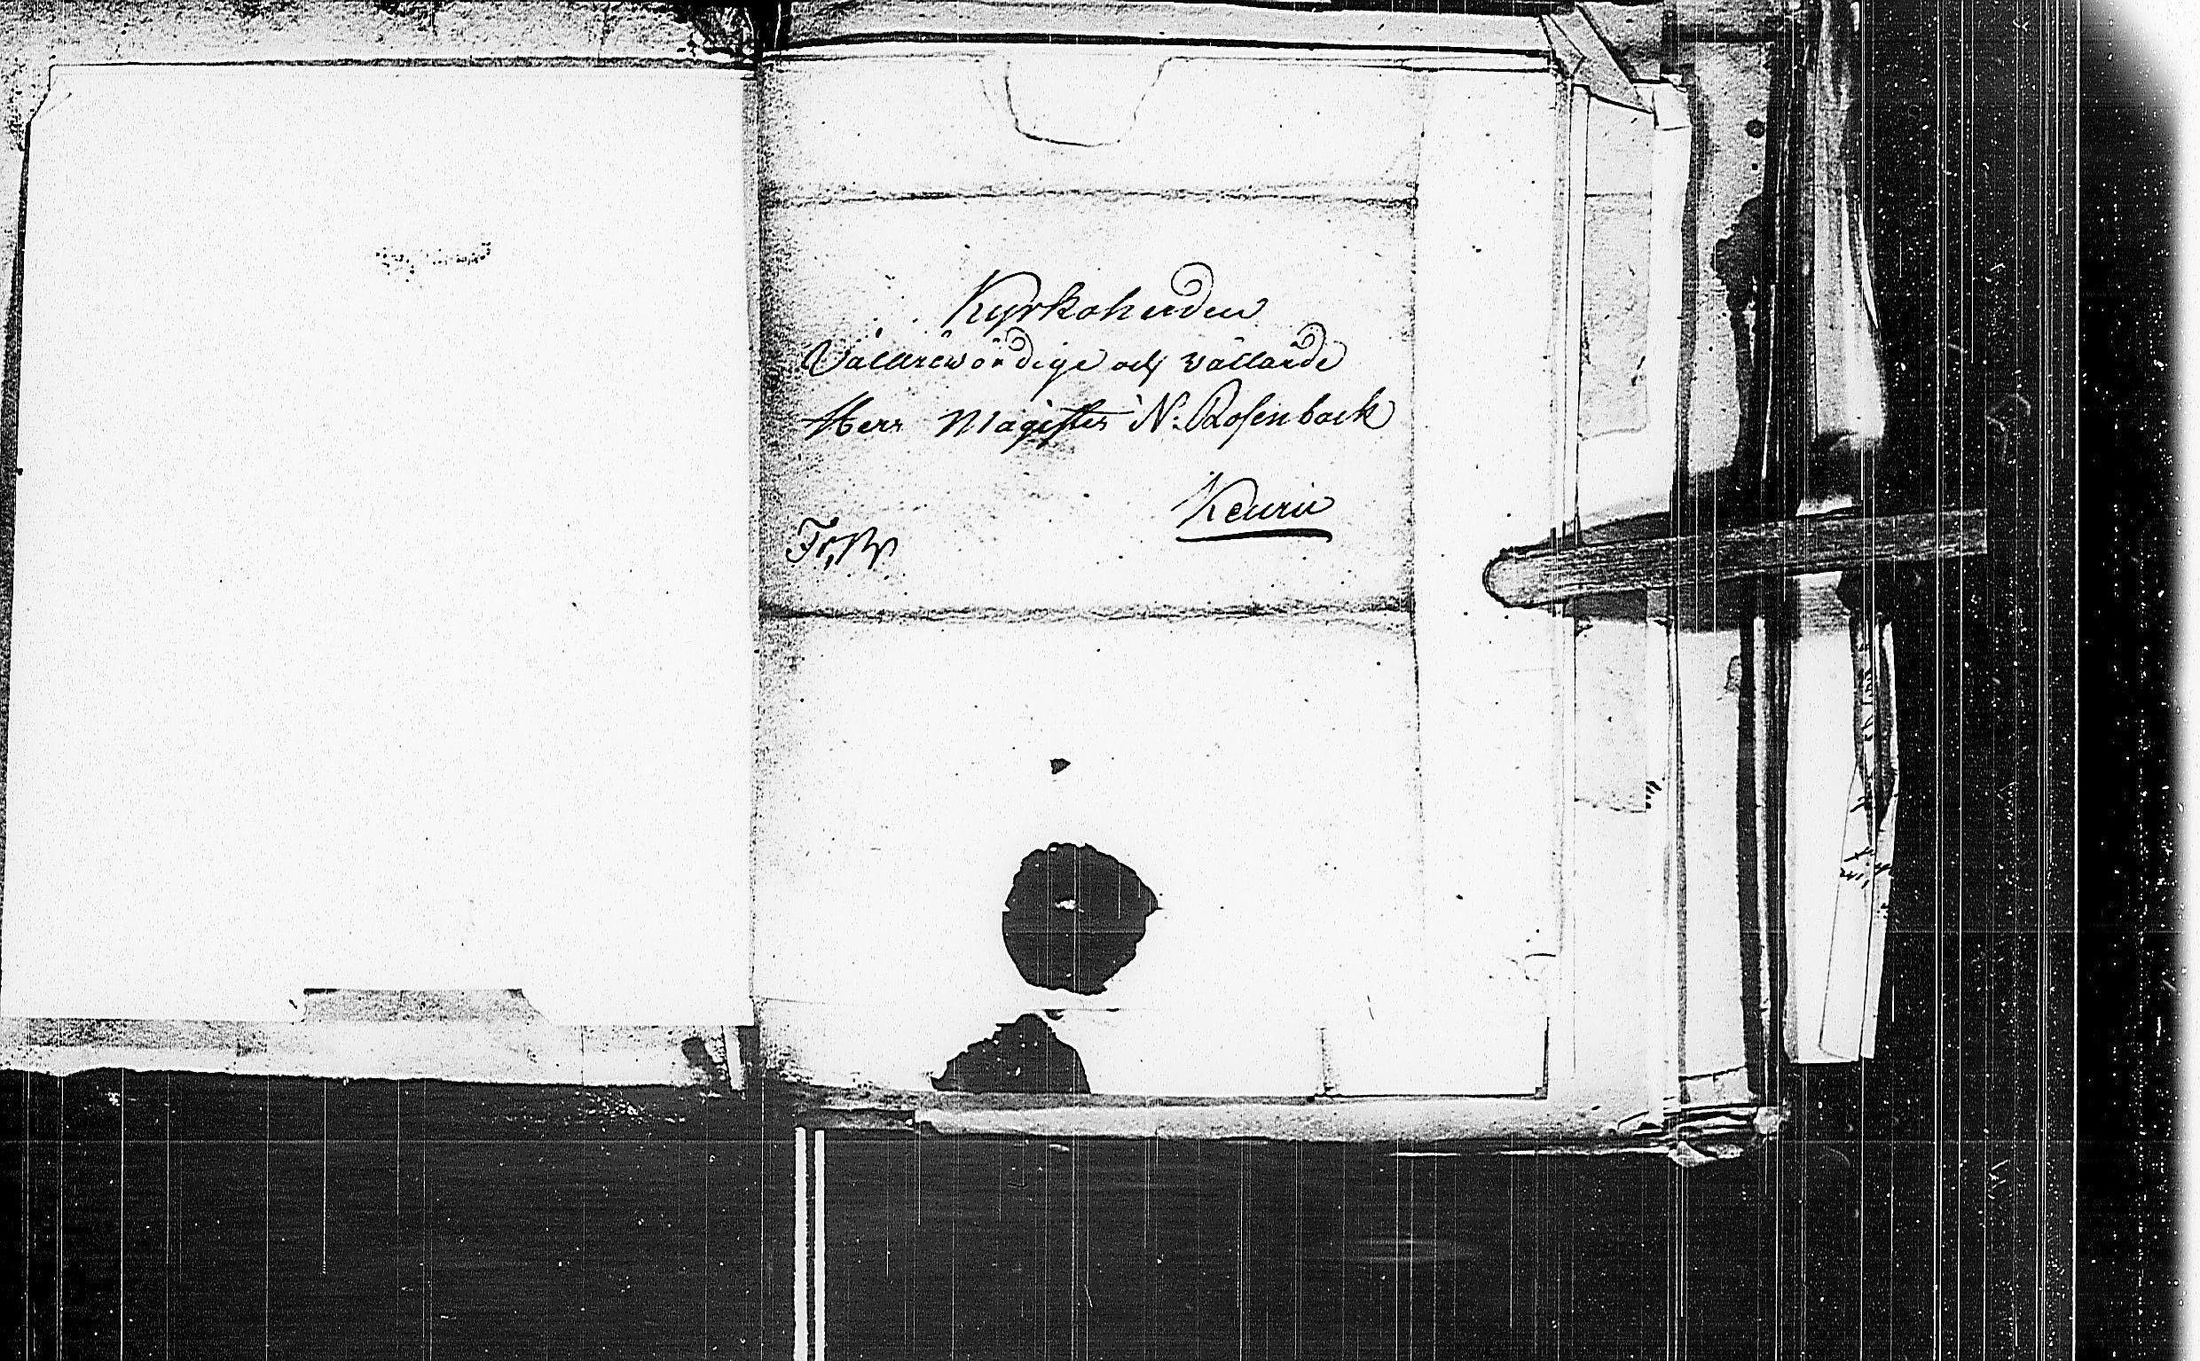 Kyrkoherden
Vällärewördige och vällärde
Herr Magister N. Rosenback
Keuru